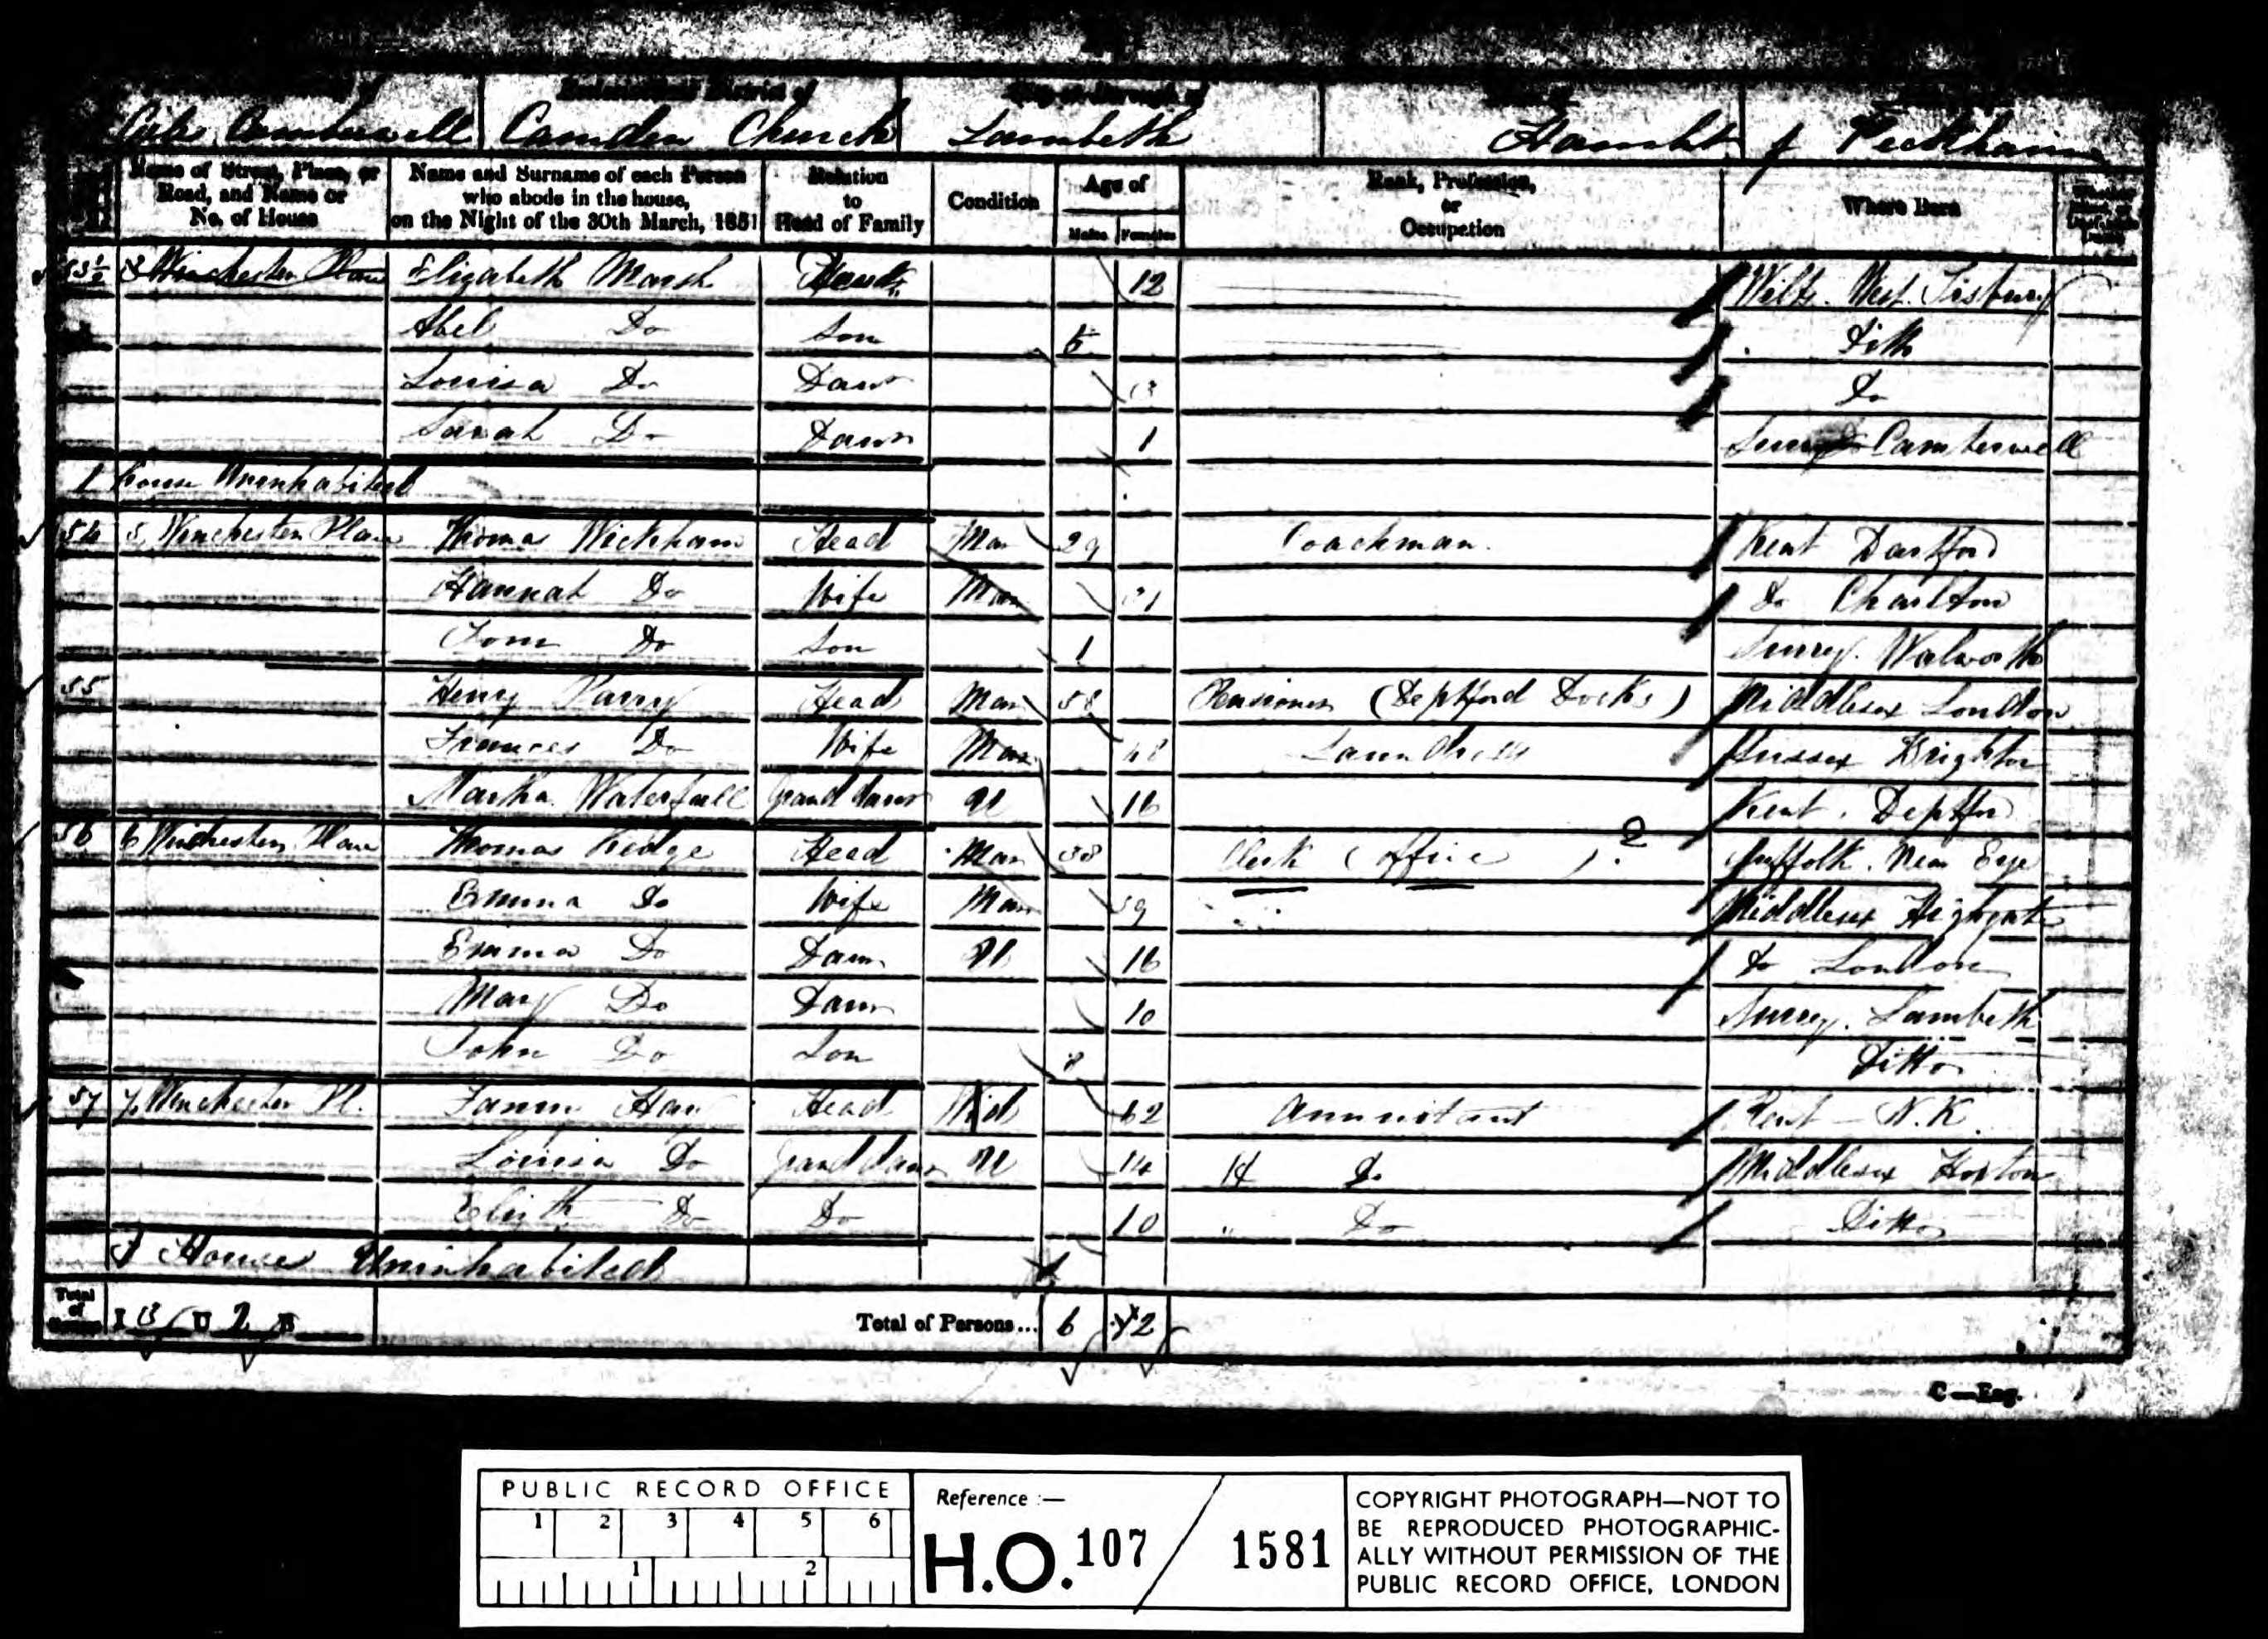 Camberwell Camden Church Lambeth Hamlet of Peckham
Name of Street, Place, or Road, and Name or No. of House
Name and Surname of each Person who abode in the house, on the Night of the 30th March, 1851
Relation to Head of Family
Condition
Age of
Males Females
Rank, Profession, or Occupation
Where Born
3 Winchester Place Elizabeth Marsh 12 Wilts. West Tisbury
Abel Do Son 5 Ditto
Louisa Do Daur 3 Do
Sarah Do Daur 1 Surry Camberwell
1 house Uninhabited
54 5 Winchester Place Thomas Wickham Head Mar 29 Coachman. Kent Dartford
Hannah Do Wife Mar 31 Do Charlton
Tom Do Son 1 Surrey. Walworth
55 Henry Parry Head Mar 58 Pensioner (Deptford Docks) Middlesex London
Frances Do Wife Mar 48 Laundress Sussex Brighton
Martha Waterfall Grand daur U 16 Kent. Deptford
56 6 Winchester Place Thomas Kedge Head Mar 38 Clerk (office ).? Suffolk. Near Eye
Emma Do Wife Mar 39 Middlesex Highgate
Emma Do Daur U 16 Do London
Mary Do Daur 10 Surrey. Lambeth
John Do Son 8 Ditto
57 7 Winchester Pl. Head Wid 62 Annuitant Kent - N.K.
Louisa Do Grand daur U 14 Do Middlesex Hoxton
Elizth Do Do 10 " Do Ditto
1 House Uninhabited
Total of Houses I 3 U 2 B Total of Persons... 6 12
C—Eng.
PUBLIC RECORD OFFICE
1 2 3 4 5 6
1 2
Reference :—
H.O. 107 / 1581
COPYRIGHT PHOTOGRAPH—NOT TO
BE REPRODUCED PHOTOGRAPHIC-
ALLY WITHOUT PERMISSION OF THE
PUBLIC RECORD OFFICE, LONDON